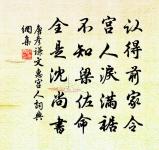 认得前家令
宮人淚滿裾
不知梁佐命
全是沈尚書
唐彥谦文惠宮人詞典
網集